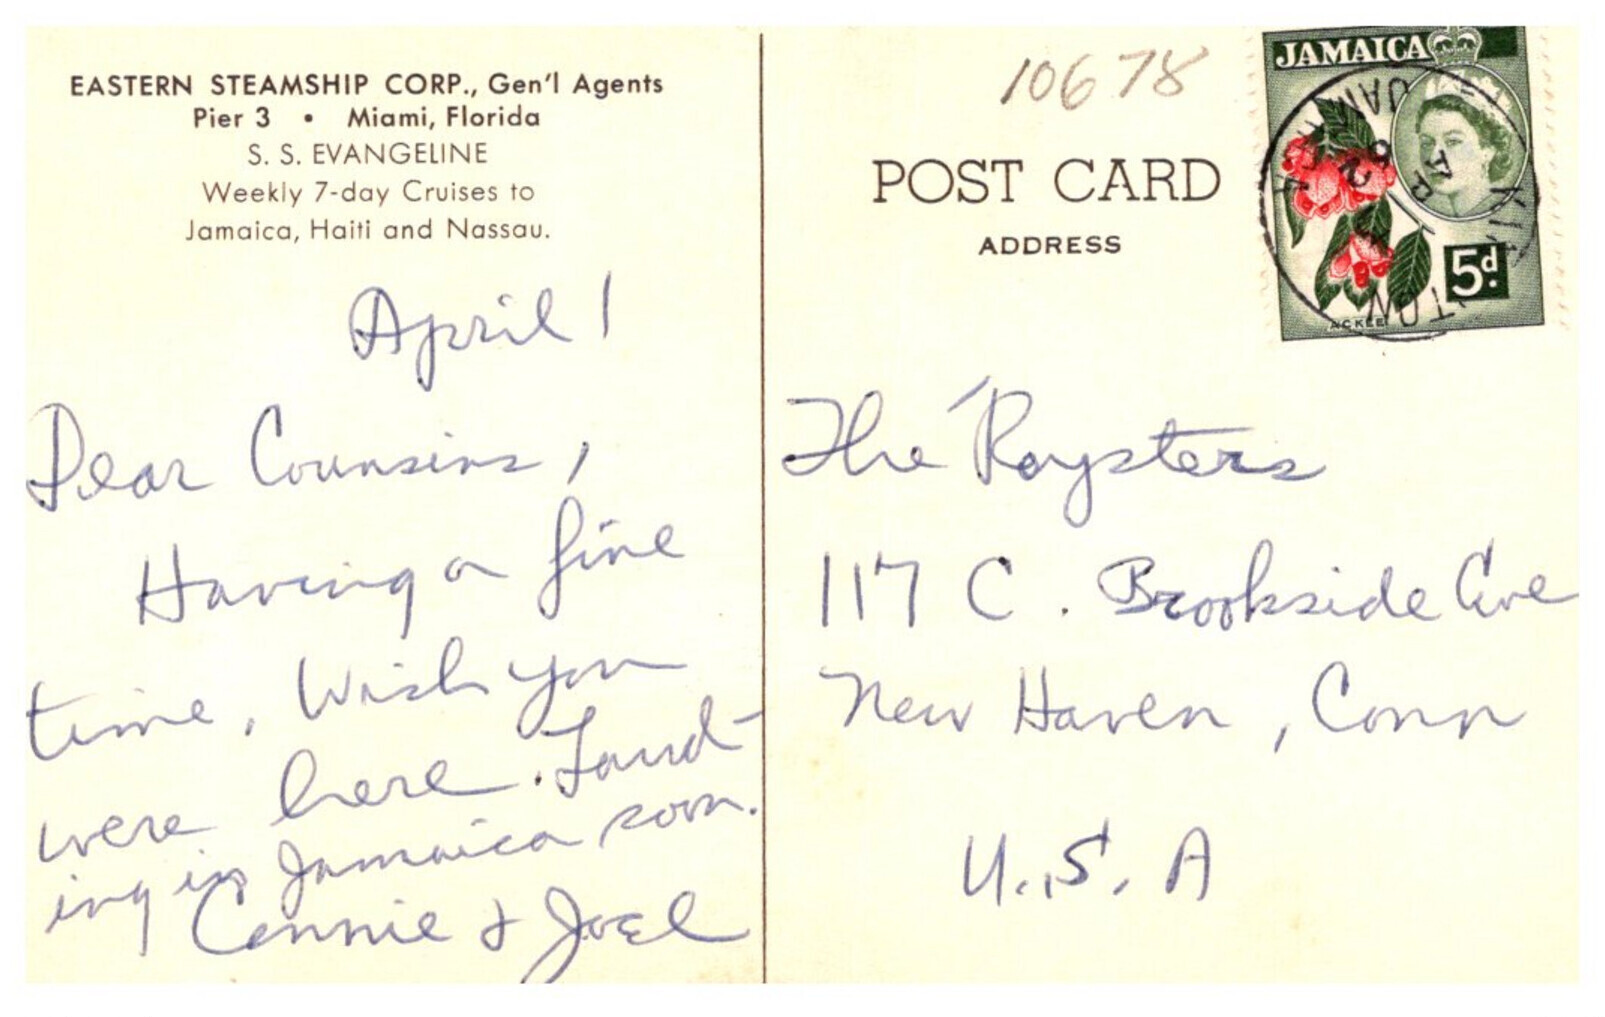 EASTERN STEAMSHIP CORP., Gen'l Agents
Pier 3 • Miami, Florida
S. S. EVANGELINE
Weekly 7-day Cruises to
Jamaica, Haiti and Nassau.
April 1
Dear Counsins,
Having a fine
time, Wish you
were here. Land-
ing in Jamaica soon.
Connie & Joel
10678
POST CARD
ADDRESS
JAMAICA
5d.
ACKEE
JAMAICA
The Roysters
117 C. Brookside Ave
New Haven, Conn
U.S.A